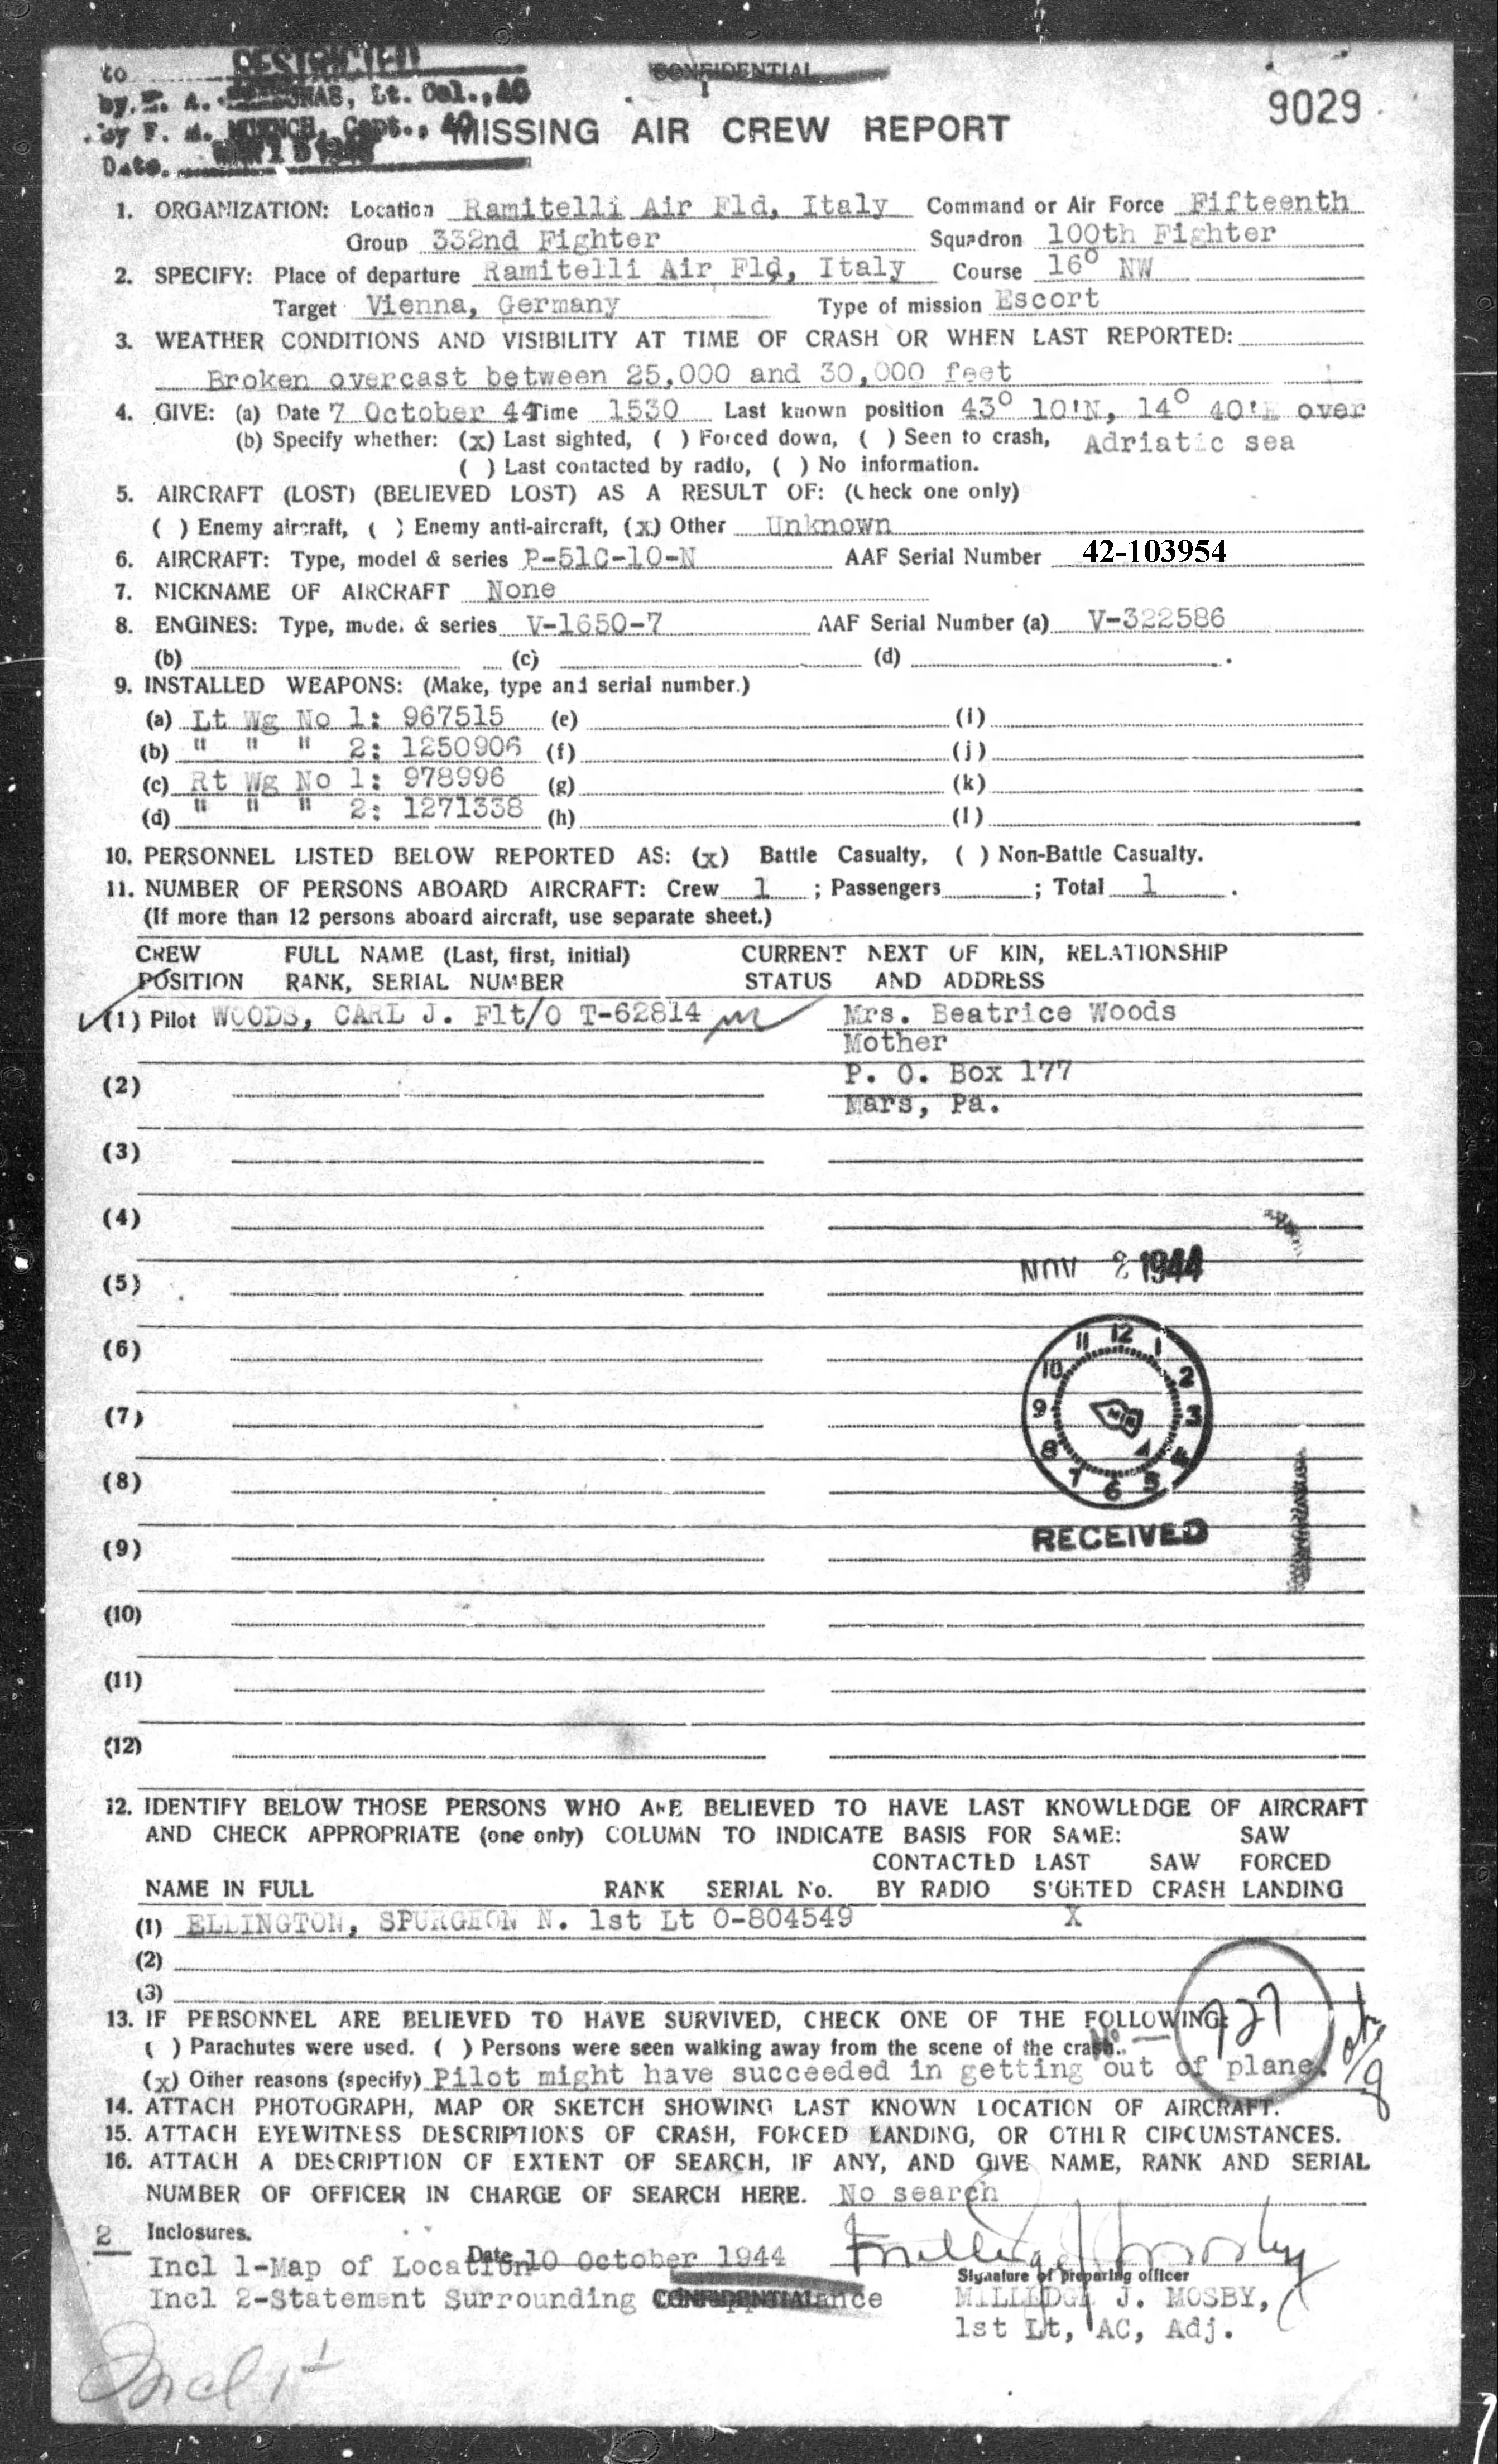 RESTRICTED
CONFIDENTIAL
to
by E. A. Lt. Col., AG
by F. M. MUENCH, Capt., AG
Date.
MISSING AIR CREW REPORT
9029
1. ORGANIZATION: Location Ramitelli Air Fld, Italy Command or Air Force Fifteenth
Group 332nd Fighter Squadron 100th Fighter
2. SPECIFY: Place of departure Ramitelli Air Fld, Italy Course 16° NW
Target Vienna, Germany Type of mission Escort
3. WEATHER CONDITIONS AND VISIBILITY AT TIME OF CRASH OR WHEN LAST REPORTED:
Broken overcast between 25,000 and 30,000 feet
4. GIVE: (a) Date 7 October 44 Time 1530 Last known position 43° 10'N, 14° 40'E over
(b) Specify whether: (x) Last sighted, ( ) Forced down, ( ) Seen to crash, Adriatic sea
( ) Last contacted by radio, ( ) No information.
5. AIRCRAFT (LOST) (BELIEVED LOST) AS A RESULT OF: (Check one only)
( ) Enemy aircraft, ( ) Enemy anti-aircraft, (x) Other Unknown
6. AIRCRAFT: Type, model & series P-51C-10-N AAF Serial Number 42-103954
7. NICKNAME OF AIRCRAFT None
8. ENGINES: Type, model & series V-1650-7 AAF Serial Number (a) V-322586
(b) (c) (d) .
9. INSTALLED WEAPONS: (Make, type and serial number.)
(a) Lt Wg No 1: 967515 (e) (i)
(b) " " " 2: 1250906 (f) (j)
(c) Rt Wg No 1: 978996 (g) (k)
(d) " " " 2: 1271338 (h) (l)
10. PERSONNEL LISTED BELOW REPORTED AS: (x) Battle Casualty, ( ) Non-Battle Casualty.
11. NUMBER OF PERSONS ABOARD AIRCRAFT: Crew 1 ; Passengers ; Total 1 .
(If more than 12 persons aboard aircraft, use separate sheet.)
CREW FULL NAME (Last, first, initial) CURRENT NEXT OF KIN, RELATIONSHIP
POSITION RANK, SERIAL NUMBER STATUS AND ADDRESS
(1) Pilot WOODS, CARL J. Flt/O T-62814 m Mrs. Beatrice Woods
Mother
(2) P. O. Box 177
Mars, Pa.
(3)
(4)
NOV 2 1944
(5)
(6)
11 12 1 2 3 4 5 6 7 8 9 10
(7)
(8)
RECEIVED
(9)
(10)
(11)
(12)
12. IDENTIFY BELOW THOSE PERSONS WHO ARE BELIEVED TO HAVE LAST KNOWLEDGE OF AIRCRAFT
AND CHECK APPROPRIATE (one only) COLUMN TO INDICATE BASIS FOR SAME: SAW
CONTACTED LAST SAW FORCED
NAME IN FULL RANK SERIAL No. BY RADIO SIGHTED CRASH LANDING
(1) ELLINGTON, SPURGEON N. 1st Lt O-804549 X
(2)
(3)
13. IF PERSONNEL ARE BELIEVED TO HAVE SURVIVED, CHECK ONE OF THE FOLLOWING:
927
( ) Parachutes were used. ( ) Persons were seen walking away from the scene of the crash. No
(x) Other reasons (specify) Pilot might have succeeded in getting out of plane.
14. ATTACH PHOTOGRAPH, MAP OR SKETCH SHOWING LAST KNOWN LOCATION OF AIRCRAFT.
15. ATTACH EYEWITNESS DESCRIPTIONS OF CRASH, FORCED LANDING, OR OTHER CIRCUMSTANCES.
16. ATTACH A DESCRIPTION OF EXTENT OF SEARCH, IF ANY, AND GIVE NAME, RANK AND SERIAL
NUMBER OF OFFICER IN CHARGE OF SEARCH HERE. No search
2 Inclosures.
Date 10 October 1944 Milledge J Mosby
Incl 1-Map of Location
Signature of preparing officer
Incl 2-Statement Surrounding
CONFIDENTIAL
MILLEDGE J. MOSBY,
1st Lt, AC, Adj.
Incl 1